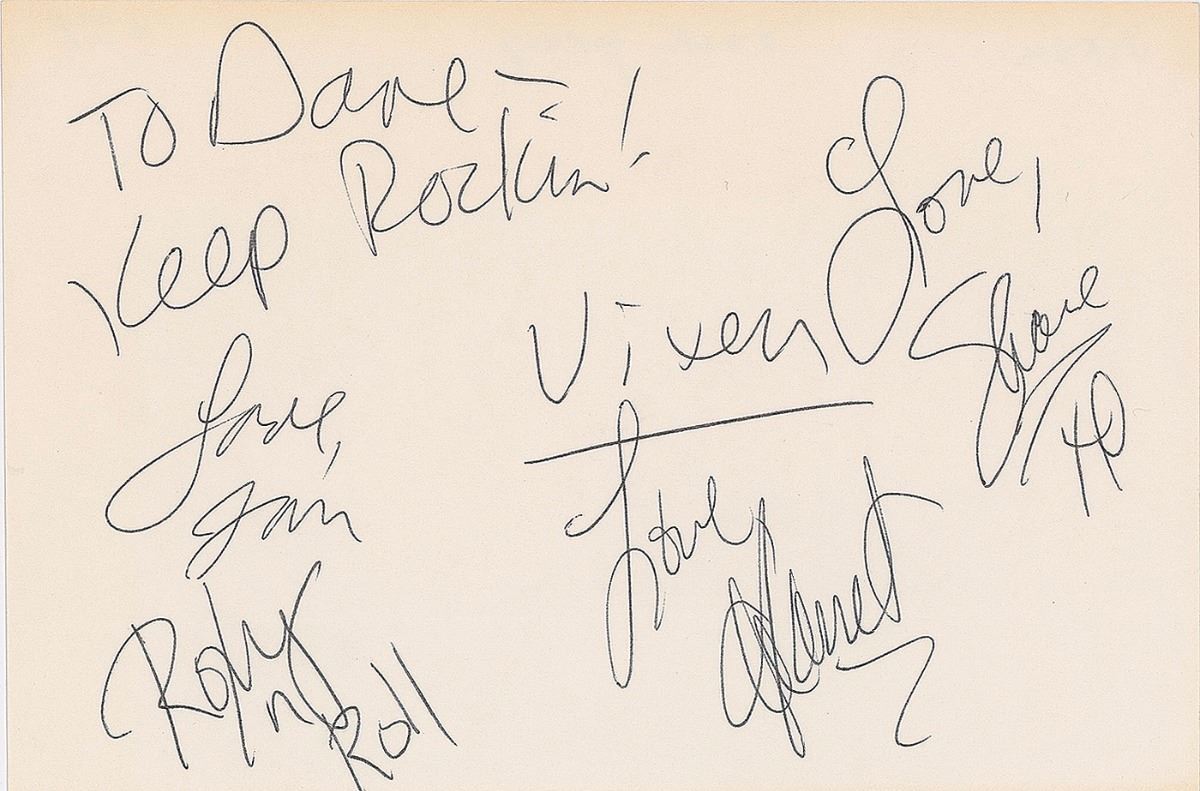 To Dave -
Keep Rockin!
Love,
Jan
Roxy
n Roll
Vixen
Love
Janet
Love,
Share
XO